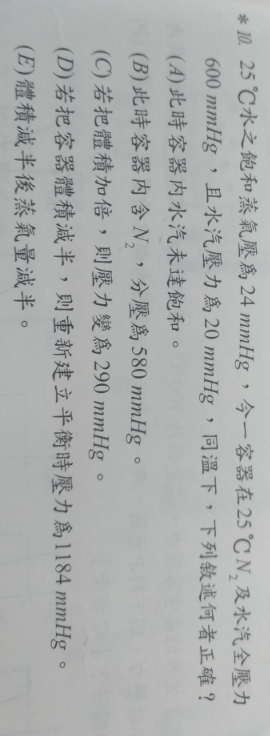 *10. 25℃水之飽和蒸氣壓為24 mmHg,今一容器在25℃ N₂及水汽全壓力
600 mmHg,且水汽壓力為20 mmHg,同溫下,下列敘述何者正確?
(A)此時容器內水汽未達飽和。
(B)此時容器內含N₂,分壓為580 mmHg。
(C)若把體積加倍,則壓力變為290 mmHg。
(D)若把容器體積減半,則重新建立平衡時壓力為1184 mmHg。
(E)體積減半後蒸氣量減半。